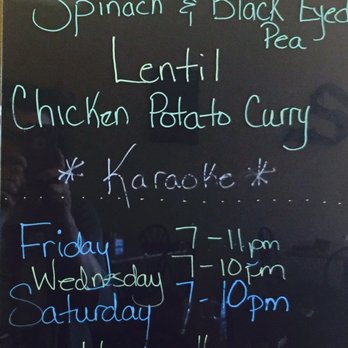 Spinach & Black Eyed
Pea
Lentil
Chicken Potato Curry
* Karaoke *
Friday 7-11pm
Wednesday 7-10pm
Saturday 7-10pm